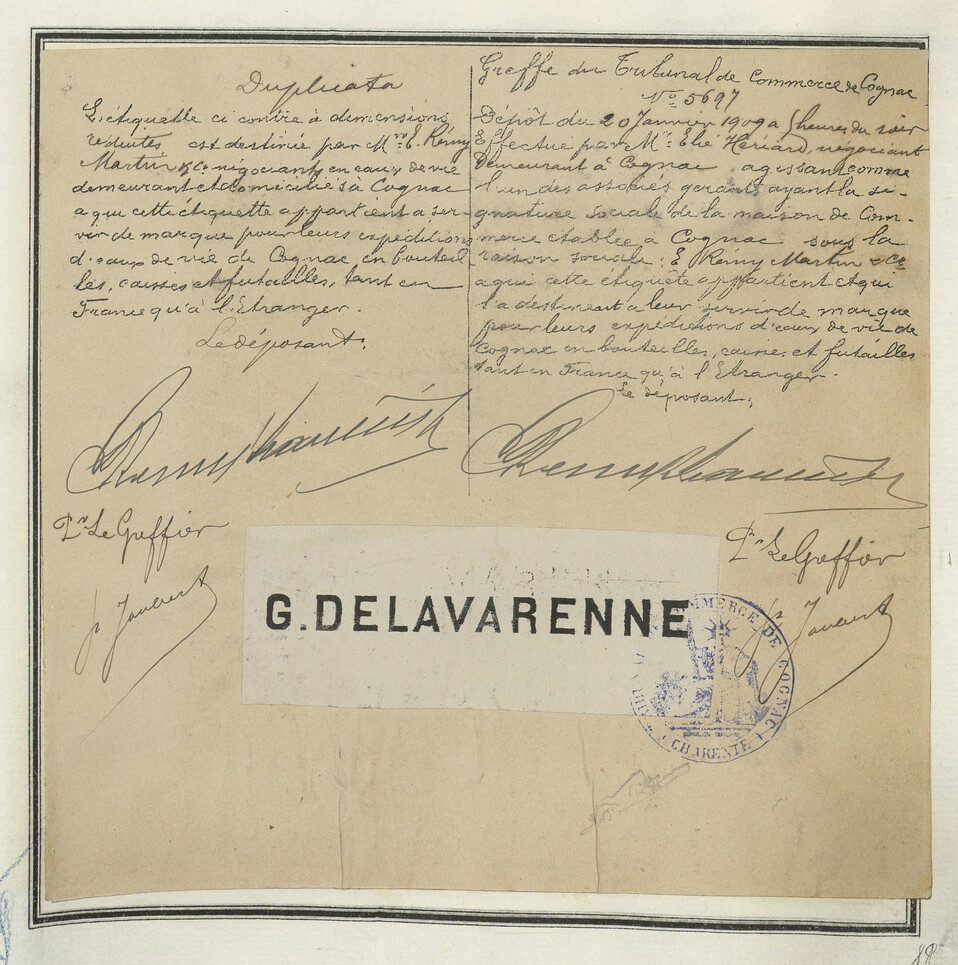 Duplicata
L'étiquette ci contre à dimensions
réduites est destiné par Mrs E. Rémy
Martin & Co négociants en eaux de vie
demeurant et domiciliés à Cognac
a qui cette étiquette appartient a ser-
vir de marque pour leurs expéditions
d'eaux de vie de Cognac en bouteil
les, caisses et futailles, tant en
France qu'à l'Etranger.
Le déposant.
Pr Le Greffier
Greffe du Tribunal de Commerce de Cognac
No 5697
Dépôt du 20 Janvier 1909 a 5 heures du soir
Effectué par Mr Elie Hériard, négociant
Demeurant à Cognac agissant comme
l'un des associés gerants ayant la si-
gnature sociale de la maison de Com-
merce etablee à Cognac sous la
raison sociale: E Rémy Martin & Co
a qui cette étiquéte appartient et qui
l'a destinent a leur servir de marque
pour leurs expéditions d'eaux de vie de
Cognac en bouteilles, caisse et futailles
tant en France qu'à l'Etranger.
Le déposant;
Pr Le Greffier
G. DELAVARENNE
COMMERCE DE COGNAC
(CHARENTE)